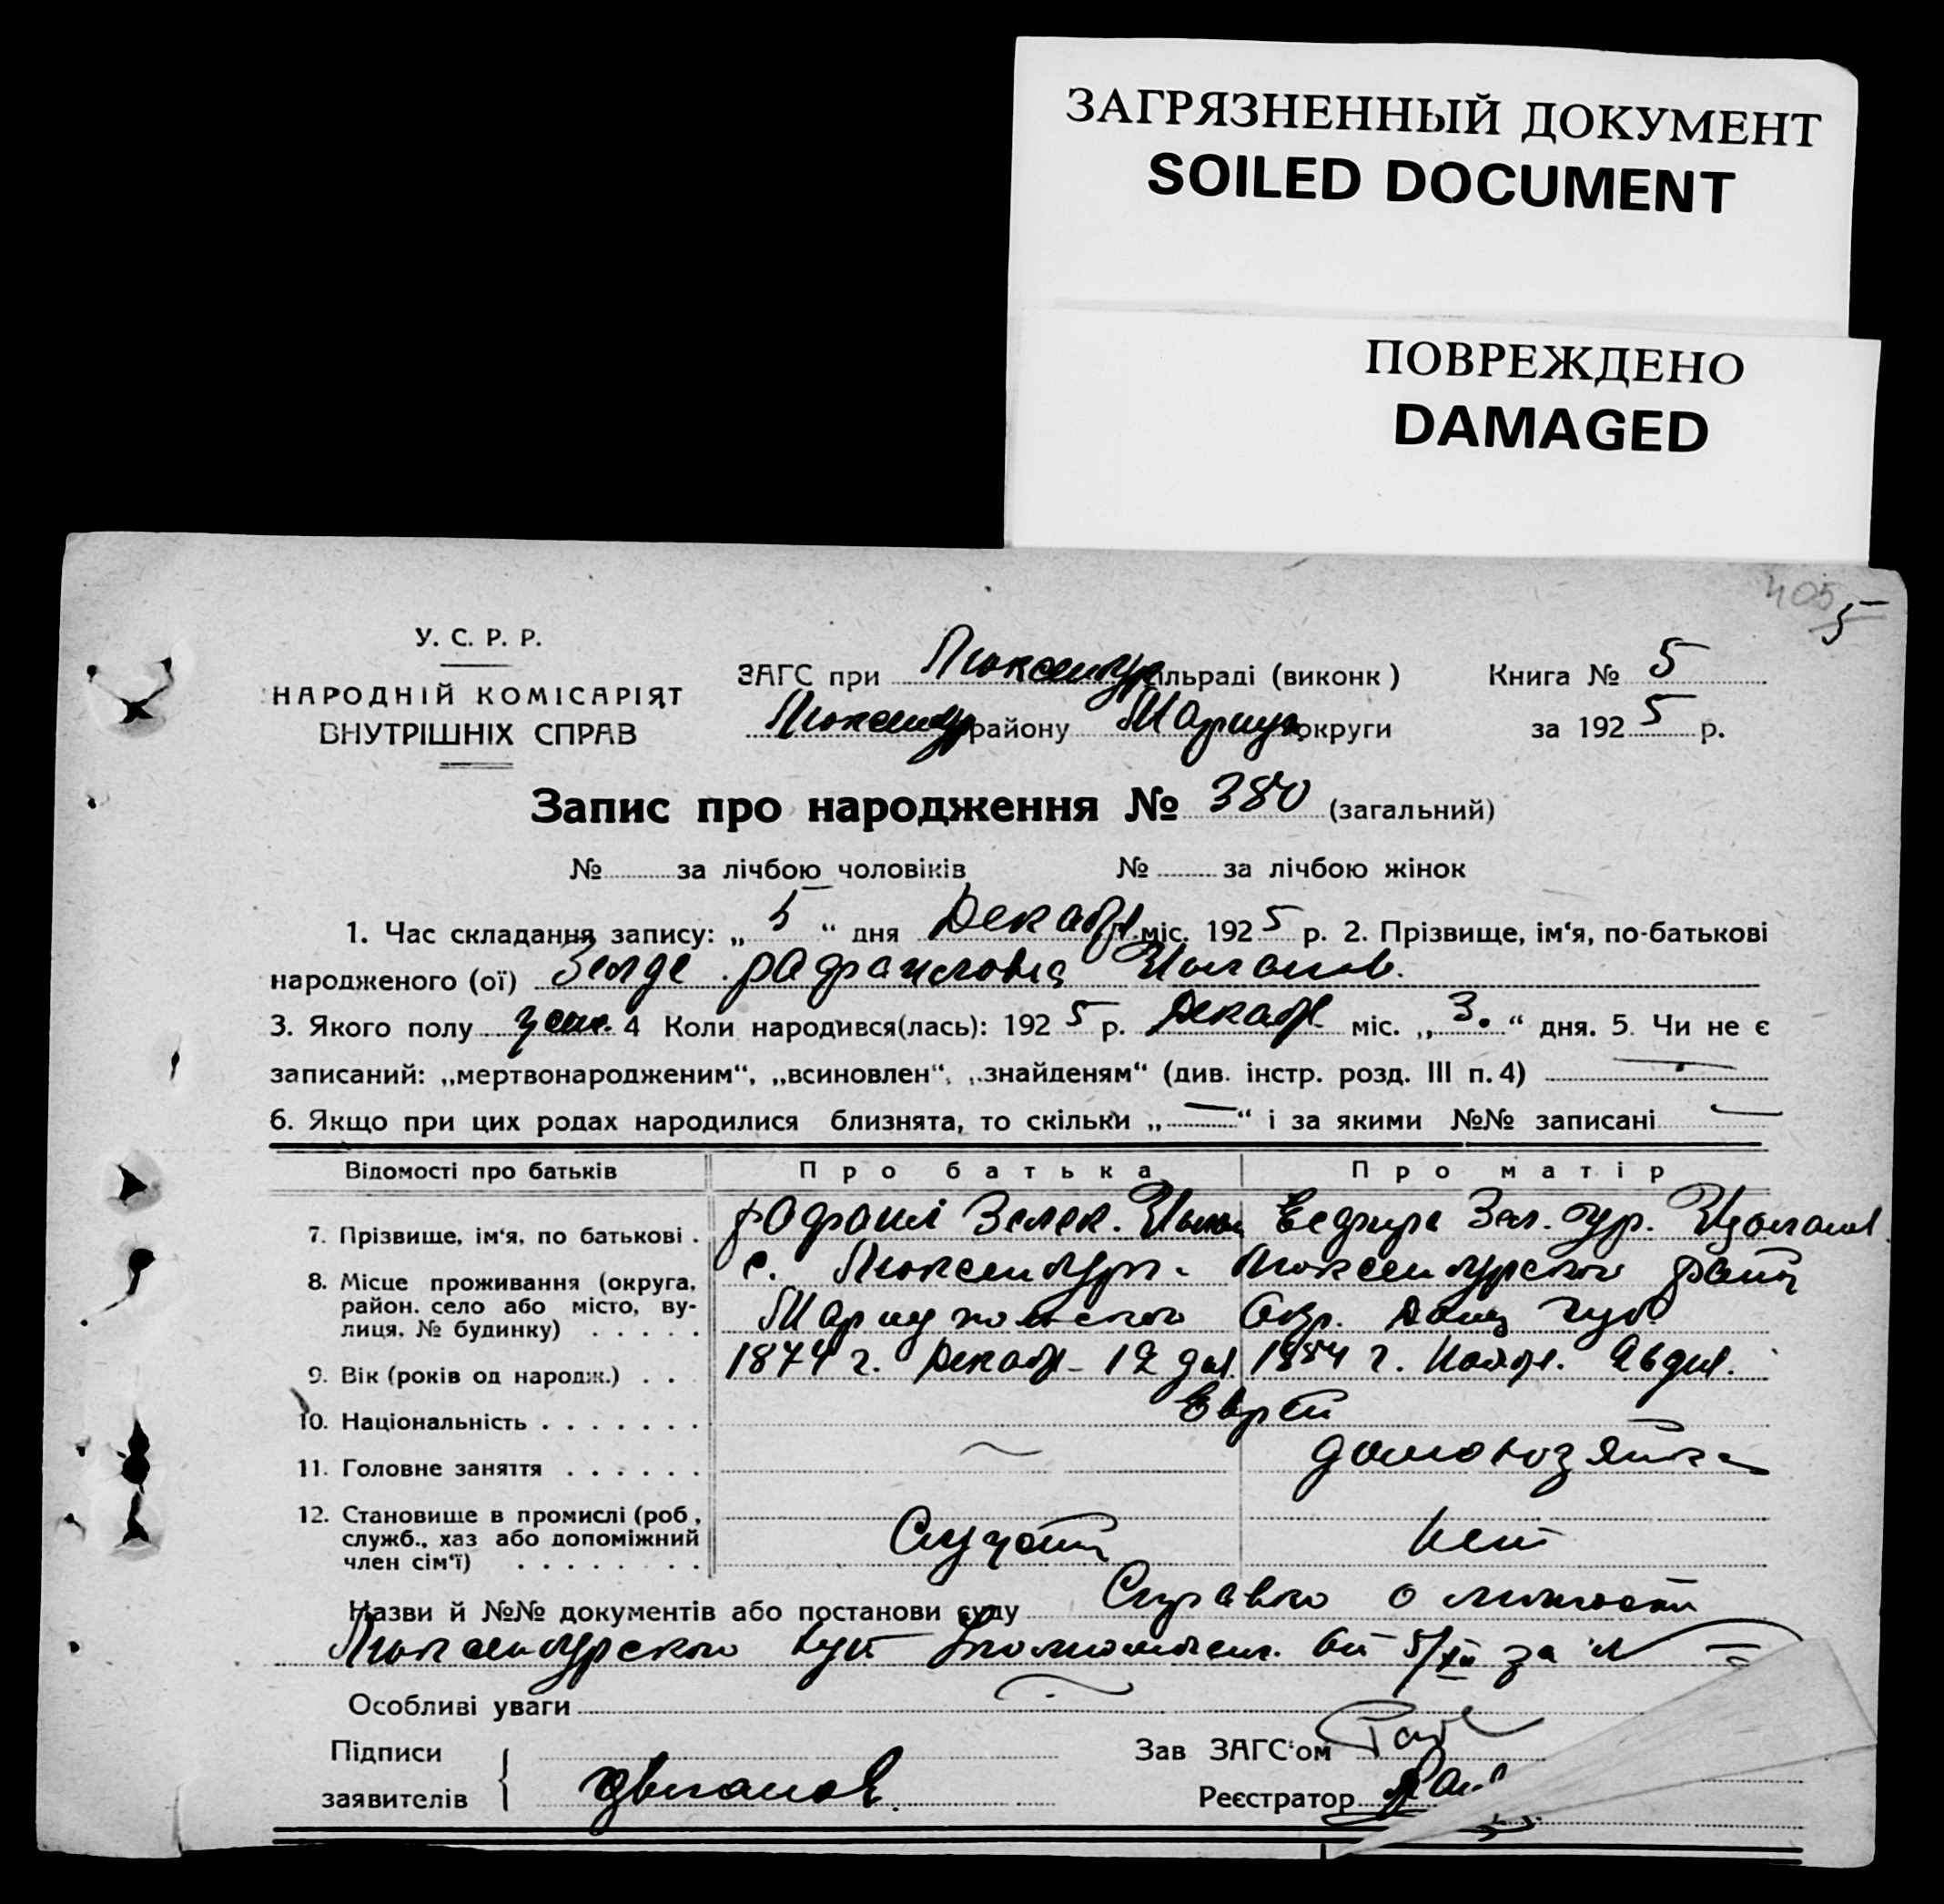 ЗАГРЯЗНЕННЫЙ ДОКУМЕНТ
SOILED DOCUMENT
ПОВРЕЖДЕНО
DAMAGED
405 5
У. С. Р. Р.
НАРОДНІЙ КОМІСАРІЯТ
ВНУТРІШНІХ СПРАВ
ЗАГС при Люксембур сільраді (виконк) Книга № 5
Люксембур району Мариуп округи за 1925 р.
Запис про народження № 380 (загальний)
№ за лічбою чоловіків № за лічбою жінок
1. Час складання запису: „ 5 “ дня Декабря міс. 1925 р. 2. Прізвище, ім‘я, по-батькові
народженого (ої) Зелде Рафаиловна
3. Якого полу жен. 4 Коли народився(лась): 1925 р. Декабр міс. „ 3. “ дня. 5. Чи не є
записаний: „мертвонародженим“, „всиновлен“, „знайденям“ (див. інстр. розд. III п. 4) —
6. Якщо при цих родах народилися близнята, то скільки „ — “ і за якими №№ записані —
Відомості про батьків Про батька Про матір
7. Прізвище, ім‘я, по батькові . Рафаил Зелек.
8. Місце проживання (округа, с. Люксембург. Люксембургского
район. село або місто, ву-
лиця. № будинку) . . . . . Мариупольского Окр. Дон губ
9. Вік (років од народж.) . . . 1874 г. Декабр 12 дня 1884 г. Ноябр. 26 дня.
10. Національність . . . . . . . Еврей
11. Головне заняття . . . . . . — домохозяйка
12. Становище в промислі (роб.,
служб., хаз або допоміжний Служащ нет
член сім‘ї) . . . . . . . .
Назви й №№ документів або постанови суду Справка о личности
Люксембургского от 5/XII за №
Особливі уваги —
Підписи Зав ЗАГС‘ом
заявителів Цыганов Реєстратор